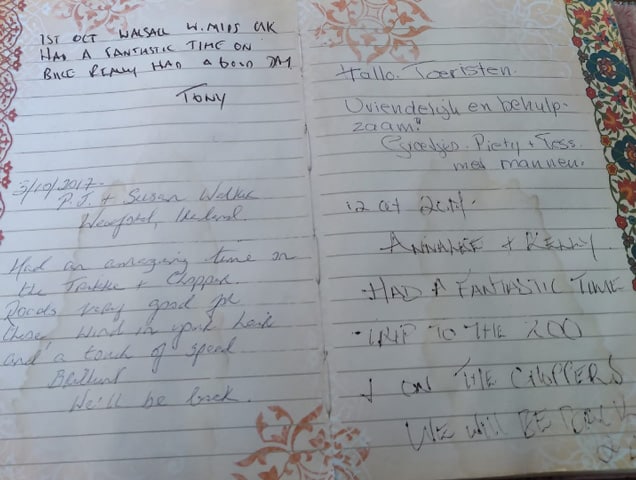 1ST OCT WALSALL W. MIDS UK
HAD A FANTASTIC TIME ON
BIKE REALLY HAD A GOOD DAY
TONY
3/10/2017.
P.J. + Susan Walker
Wexford, Ireland.
Had an amazing time on
the Trike + Chopper.
Roads very good for
these, wind in your hair
and a touch of speed
Brilliant
We'll be back.
Hallo Toeristen.
Vriendelijk en behulp-
zaam!!
Groetjes Piety + Tess
met mannen.
12 oct 2017.
ANNANKE + KENNY.
HAD A FANTASTIC TIME
TRIP TO THE ZOO
+ ON THE CHOPPERS
WE WILL BE BACK